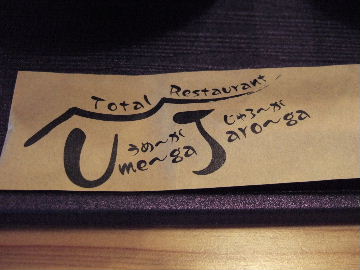 Total Restaurant
うめ〜が じゃろ〜が
Ume〜ga Jaro〜ga